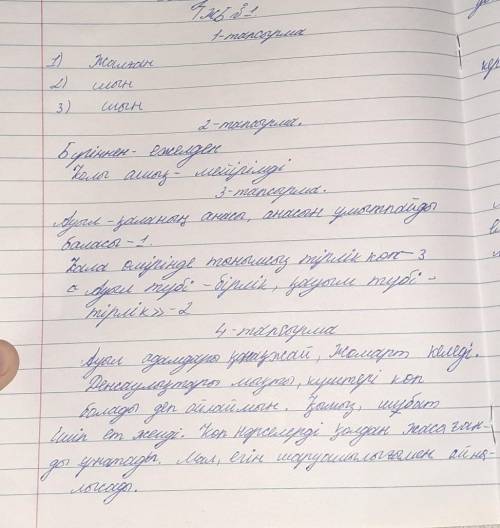 ТЖБ №1
1-тапсырма
1) Жалған
2) шын
3) шын
2-тапсырма.
Бүгіннен - ежелден
Қолы ашық - мейірімді
3-тапсырма.
Ауыл - қаланың анасы, анасын ұмытпайды
баласы - 1.
Қала өмірінде тынымсыз тірлік көп - 3
« Ауыл түбі - бірлік, қауым түбі -
тірлік» - 2
4-тапсырма
Ауыл адамдары қонақжай, Жомарт келеді.
Денсаулықтары мықты, күштері көп
болады деп ойлаймын. Қымыз, шұбат
ішіп ет жейді. Көп нәрселерді қолдан жасаған-
ды ұнатады. Мал, егін шаруашылығымен айна-
лысады.